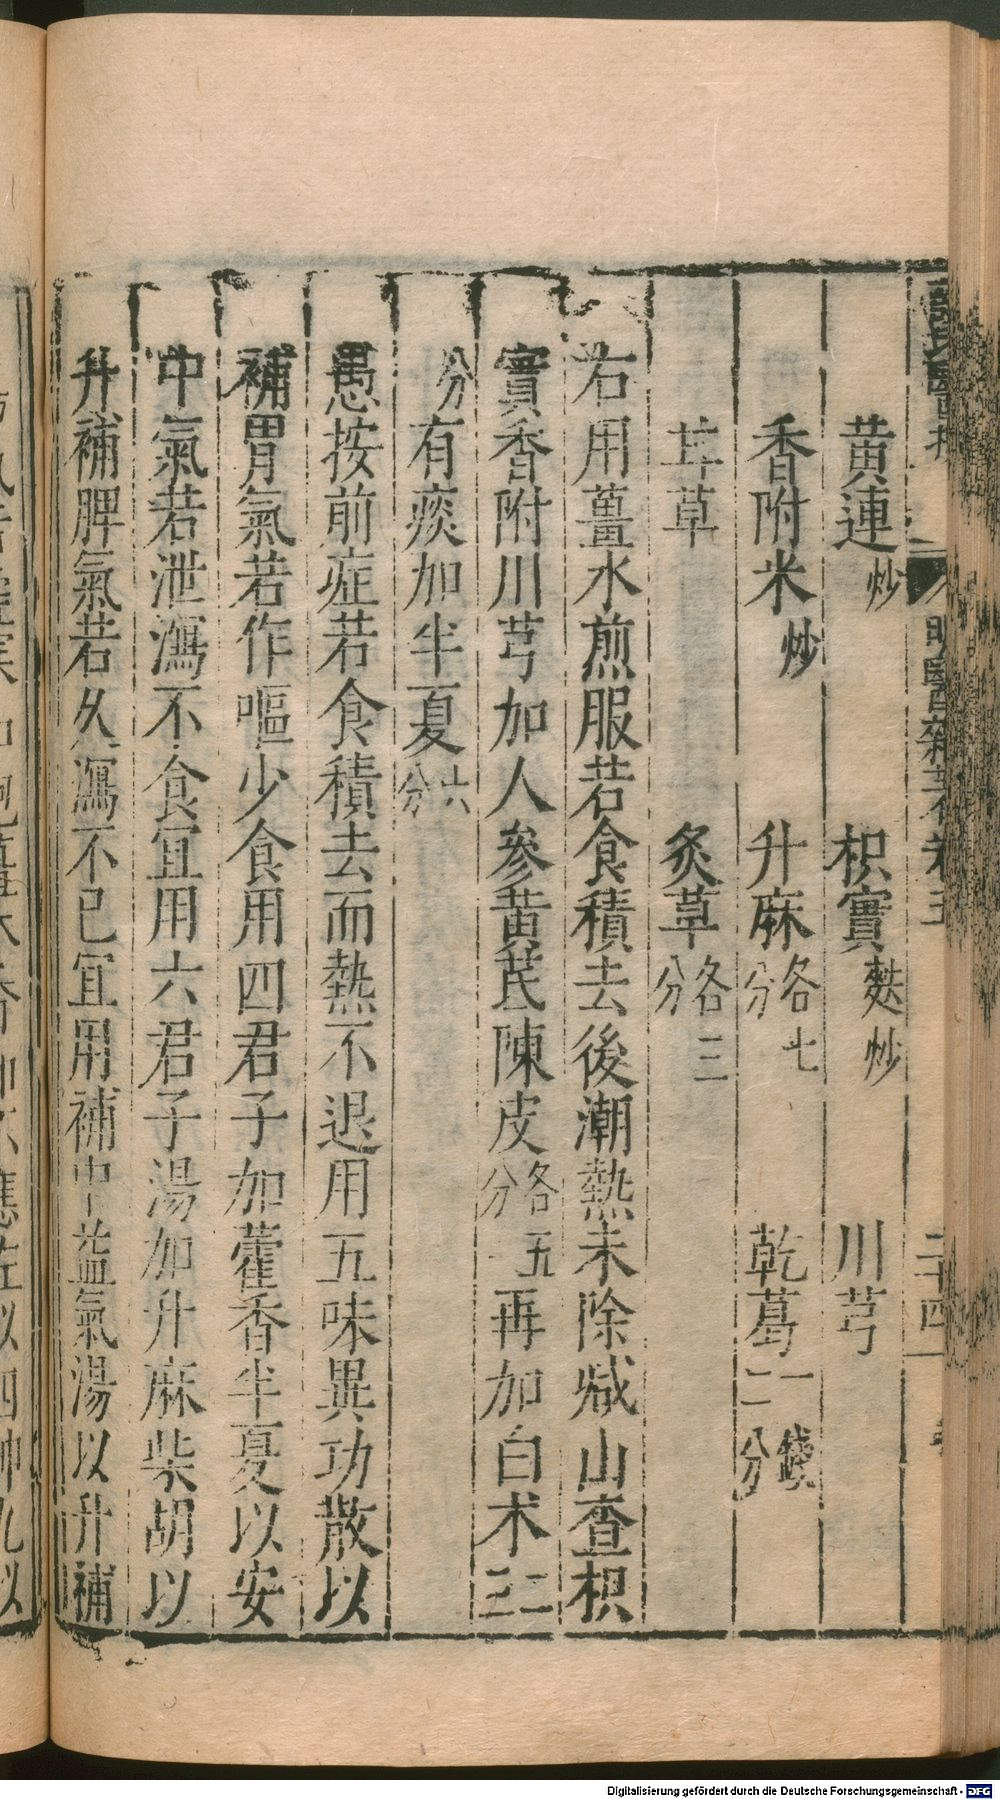 明醫雜著卷五 二十四
黃連炒 枳實麩炒 川芎
香附米炒 升麻各七分 乾葛一錢二分
甘草 炙草各三分
右用薑水煎服若食積去後潮熱未除減山查枳
實香附川芎加人參黃芪陳皮各五分再加白术二三
分有痰加半夏六分
愚按前症若食積去而熱不退用五味異功散以
補胃氣若作嘔少食用四君子加藿香半夏以安
中氣若泄瀉不食宜用六君子湯加升麻柴胡以
升補脾氣若久瀉不已宜用補中益氣湯以升補
Digitalisierung gefördert durch die Deutsche Forschungsgemeinschaft - DFG